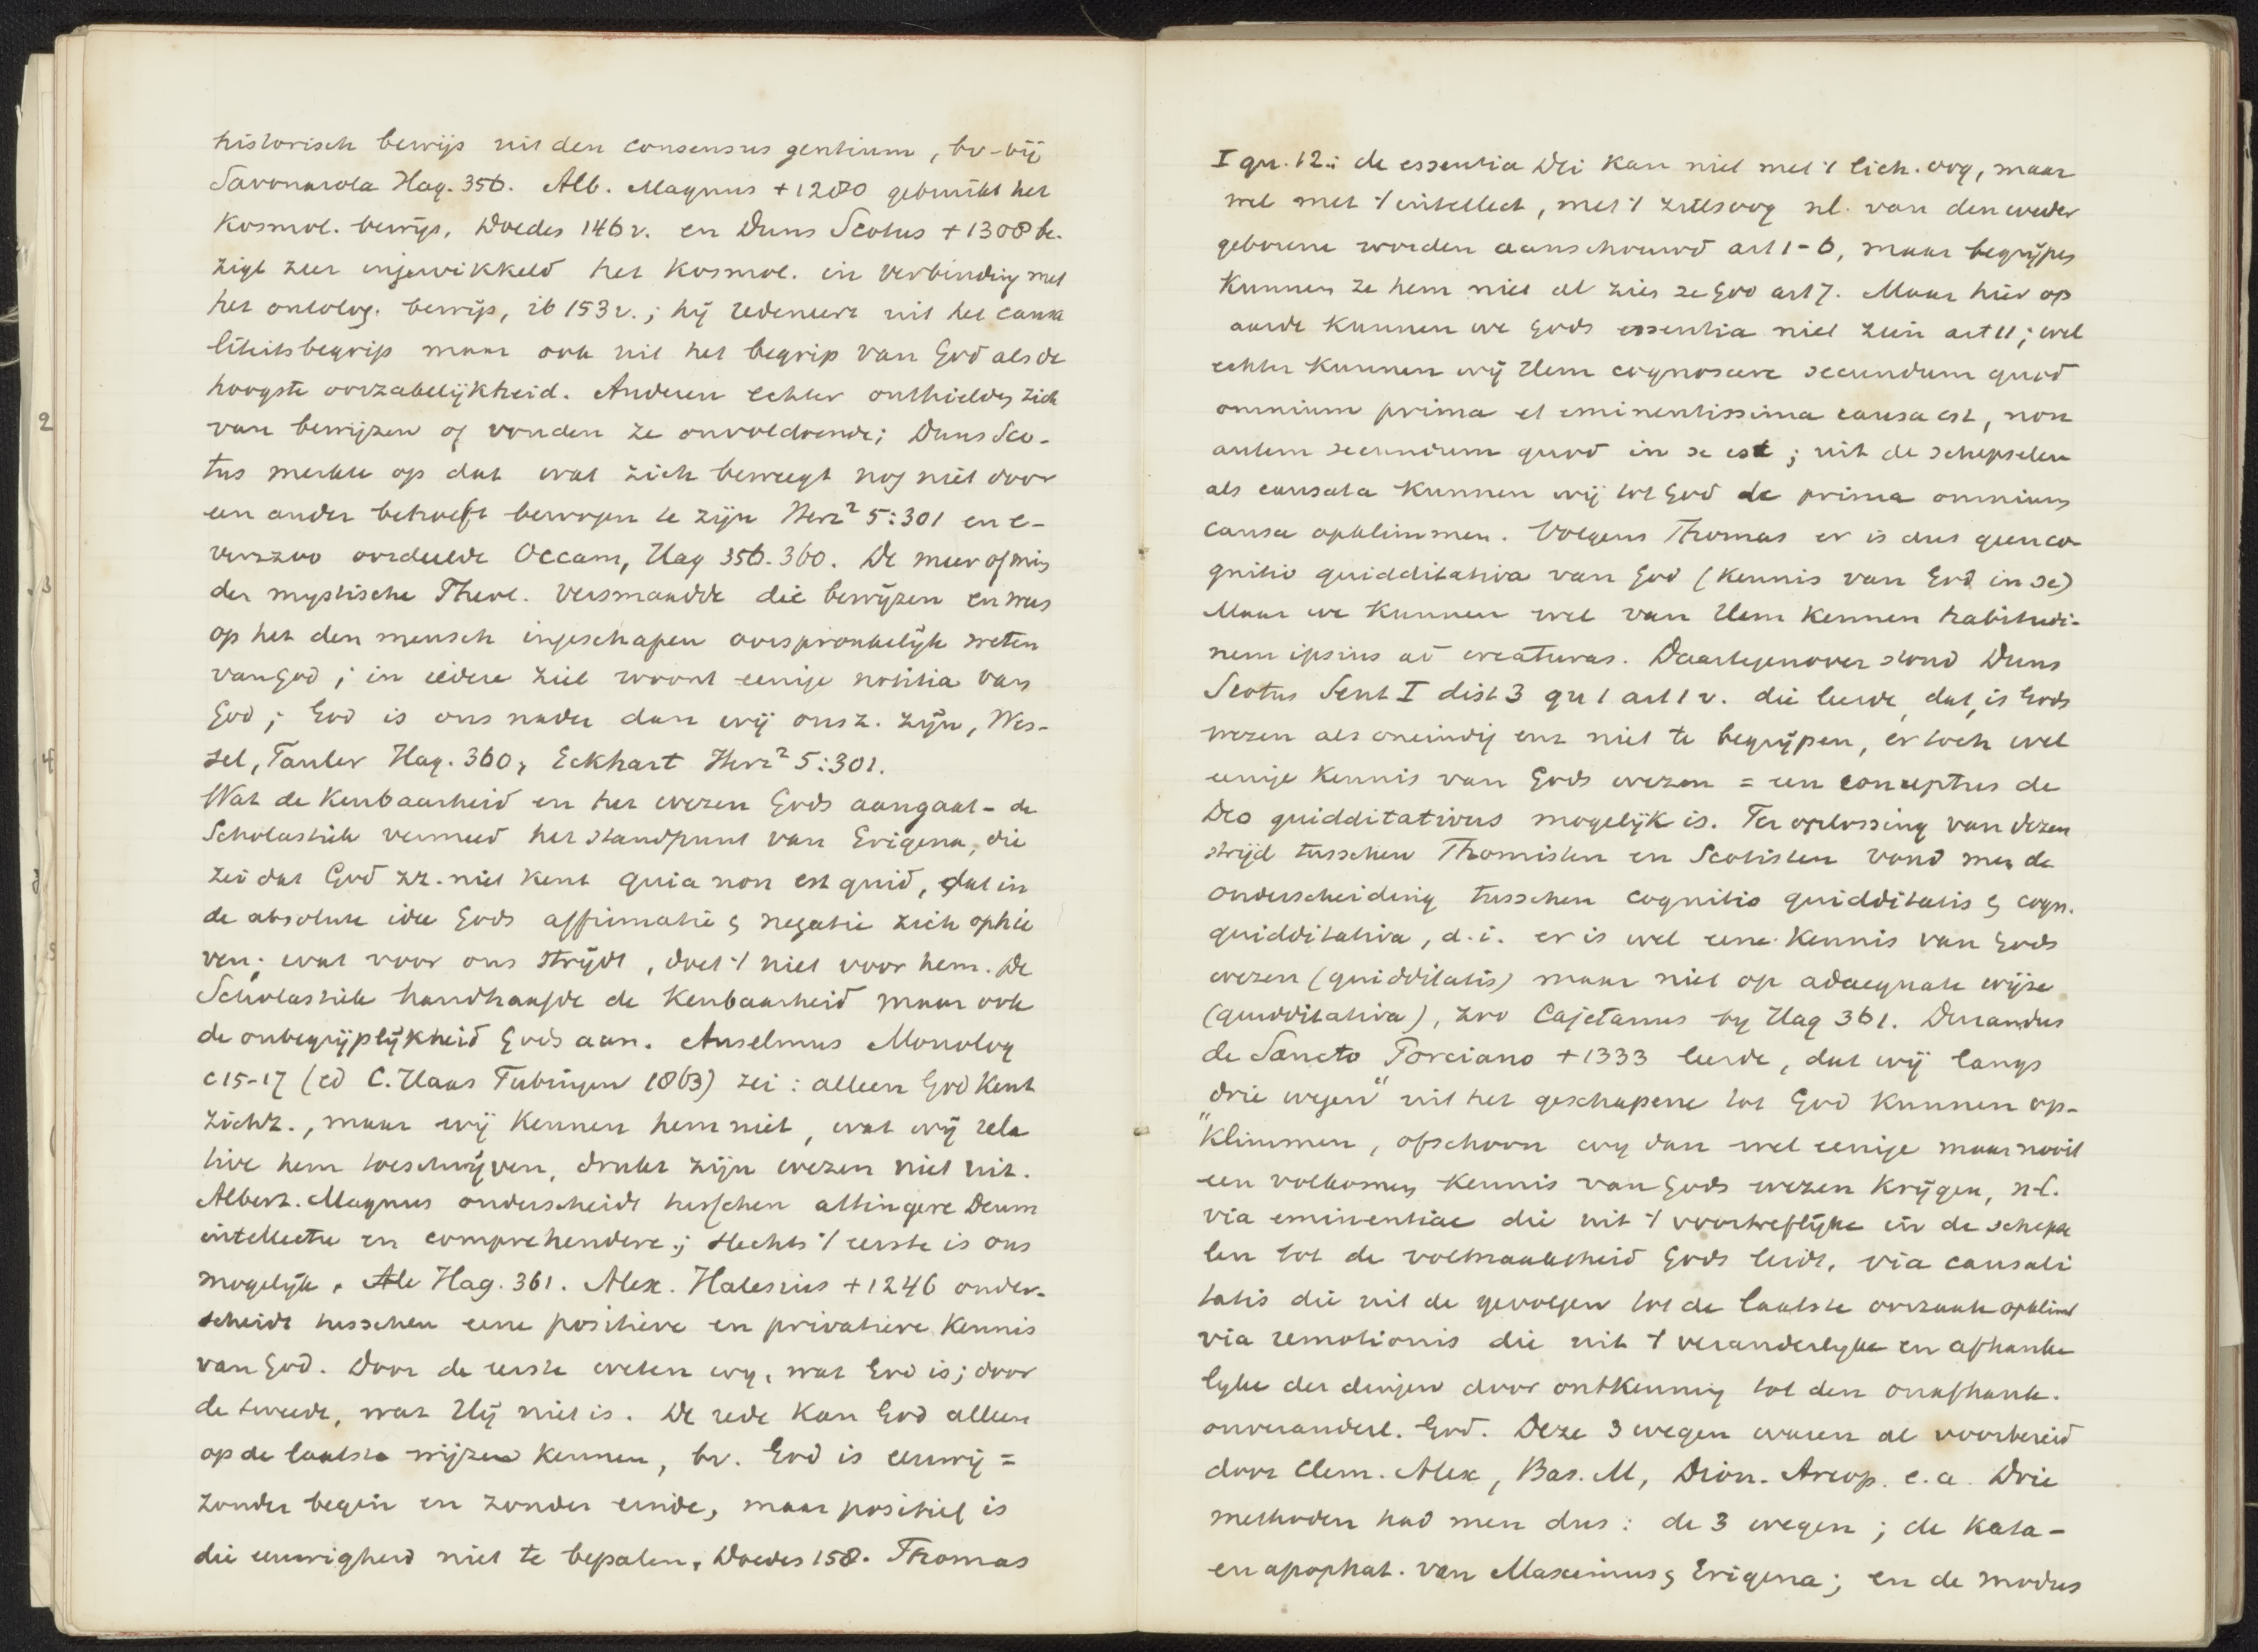 historisch bewijs uit den consensus gentium, bv. bij
Savonarola Hag. 356. Alb. Magnus + 1280 gebruikt het
Kosmol. bewijs, Doedes 146 v. en Duns Scotus + 1308 be-
zigt zeer ingewikkeld het Kosmol. in verbinding met
het ontolog. bewijs, ib 153 v.; hij redeneert uit het causa
liteitsbegrip maar ook uit het begrip van God als de
hoogste oorzakelijkheid. Anderen echter onthielden zich
van bewijzen of vonden ze onvoldoende; Duns Sco-
tus merkte op dat wat zich beweegt nog niet door
een ander behoeft bewogen te zijn Herz² 5:301 en e-
venzoo oordeelde Occam, Hag 356. 360. De meer of min
der mystische Theol. versmaadde die bewijzen en wees
op het den mensch ingeschapen oorspronkelijk weten
van God; in iedere ziel woont eenige notitia van
God; God is ons nader dan wij ons z. zijn, Wes-
sel, Tauler Hag. 360, Eckhart Herz² 5:301.
Wat de Kenbaarheid en het wezen Gods aangaat - de
Scholastiek vermeed het standpunt van Erigena, die
zei dat God zz. niet kent quia non est quid, dat in
de absolute idee Gods affirmatie & negatie zich ophie
ven; wat voor ons strijdt, doet 't niet voor hem. De
Scholastiek handhaafde de Kenbaarheid maar ook
de onbegrijplijkheid Gods aan. Anselmus Monolog
c 15-17 (ed C. Haas Tubingen 1863) zei: alleen God Kent
zichz., maar wij Kennen hem niet, wat wij rela
tive hem toeschrijven, drukt zijn wezen niet uit.
Albert. Magnus onderscheidt tusschen attingere Deum
intellectu en comprehendere; slechts 't eerste is ons
mogelijk. Hag. 361. Alex. Halesius + 1246 onder-
scheidt tusschen eene positieve en privatieve Kennis
van God. Door de eerste weten wy, wat God is; door
de tweede, wat Hij niet is. De rede Kan God alleen
op de laatste wijze Kennen, bv. God is eeuwig =
zonder begin en zonder einde, maar positief is
die eeuwigheid niet te bepalen, Doedes 158. Thomas
I qu. 12: de essentia Dei Kan niet met 't lich. oog, maar
wel met 't intellect, met 't zielsoog nl. van den weder
geborene worden aanschouwd art 1-6, maar begrijpen
Kunnen ze hem niet al zien ze God art 7. Maar hier op
aarde Kunnen we Gods essentia niet zien art 11; wel
echter Kunnen wij Hem cognoscere secundum quod
omnium prima et eminentissima causa est, non
autem secundum quod in se est; uit de schepselen
als causata Kunnen wij tot God de prima omnium
causa opklimmen. Volgens Thomas er is dus geen co-
gnitio quidditativa van God (Kennis van God in se)
Maar we Kunnen wel van Hem Kennen habitudi-
nem ipsius ad creaturas. Daartegenover stond Duns
Scotus Sent I dist 3 qu 1 art 1 v. die leerde, dat, is Gods
wezen als oneindig ens niet te begrijpen, er toch wel
eenige Kennis van Gods wezen = een conceptus de
Deo quidditativus mogelijk is. Ter oplossing van dezen
strijd tusschen Thomisten en Scotisten vond men de
onderscheiding tusschen cognitio quidditatis & cogn.
quidditativa, d.i. er is wel eene Kennis van Gods
wezen (quidditatis) maar niet op adaequate wijze
(quidditativa), zoo Cajetanus by Hag 361. Durandus
de Sancto Porciano + 1333 leerde, dat wij langs
drie wegen" uit het geschapene tot God Kunnen op-
"Klimmen, ofschoon wy dan wel eenige maar nooit
een volkomen Kennis van Gods wezen Krijgen, nl.
via eminentiae die uit 't voortreflijke in de schepse
len tot de volmaaktheid Gods leidt, via causali
tatis die uit de gevolgen tot de laatste oorzaak opklimt
via remotionis die uit 't veranderlyke en afhanke
lyke der dingen door ontkenning tot den onafhank.
onveranderl. God. Deze 3 wegen waren al voorbereid
door Clem. Alex, Bas. M, Dion. Areop. e.a. Drie
methoden had men dus: de 3 wegen; de Kata-
en apophat. van Maximus & Erigena; en de modus